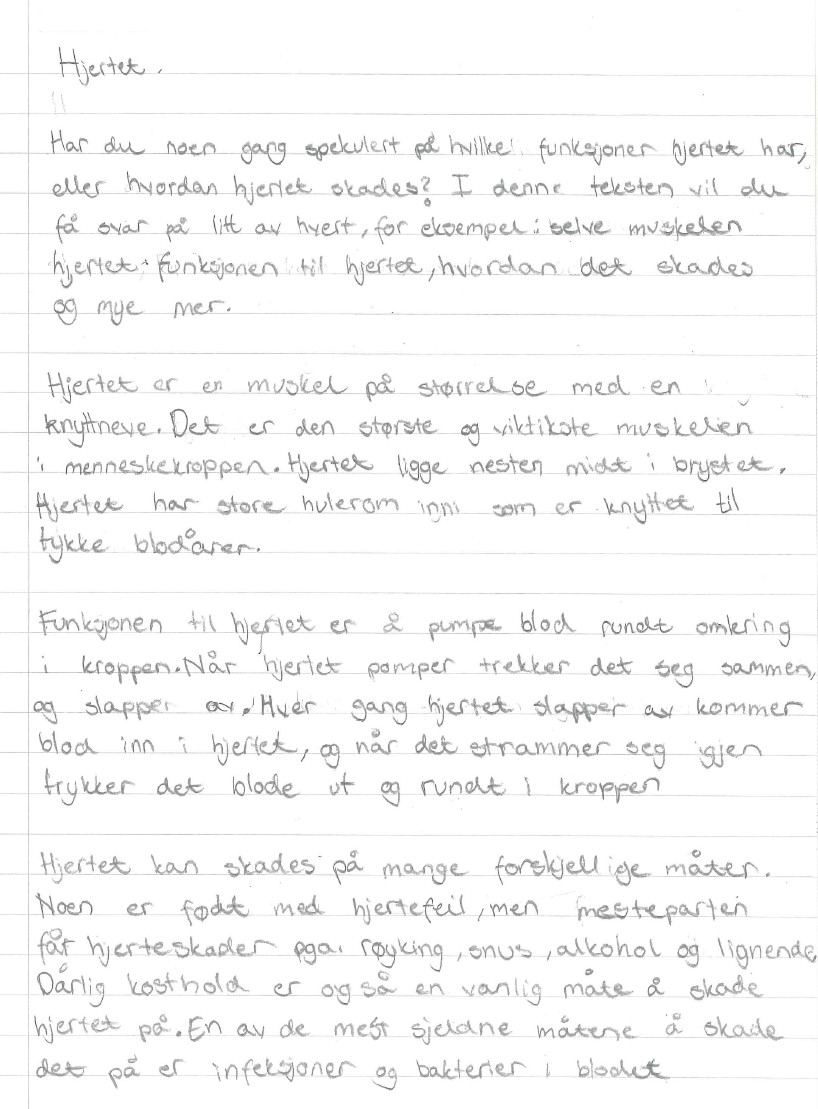 Hjertet.
Har du noen gang spekulert på hvilke funksjoner hjertet har,
eller hvordan hjertet skades? I denne teksten vil du
få svar på litt av hvert, for eksempel: selve muskelen
hjertet, funksjonen til hjertet, hvordan det skades
og mye mer.
Hjertet er en muskel på størrelse med en
knyttneve. Det er den største og viktikste muskelen
i menneskekroppen. Hjertet ligge nesten midt i brystet.
Hjertet har store hulerom inni som er knyttet til
tykke blodårer.
Funksjonen til hjertet er å pumpe blod rundt omkring
i kroppen. Når hjertet pomper trekker det seg sammen,
og slapper av. Hver gang hjertet slapper av kommer
blod inn i hjertet, og når det strammer seg igjen
trykker det blode ut og rundt i kroppen
Hjertet kan skades på mange forskjellige måter.
Noen er født med hjertefeil, men mesteparten
får hjerteskader pga. røyking, snus, alkohol og lignende.
Dårlig kosthold er også en vanlig måte å skade
hjertet på. En av de mest sjeldne måtene å skade
det på er infeksjoner og bakterier i blodet